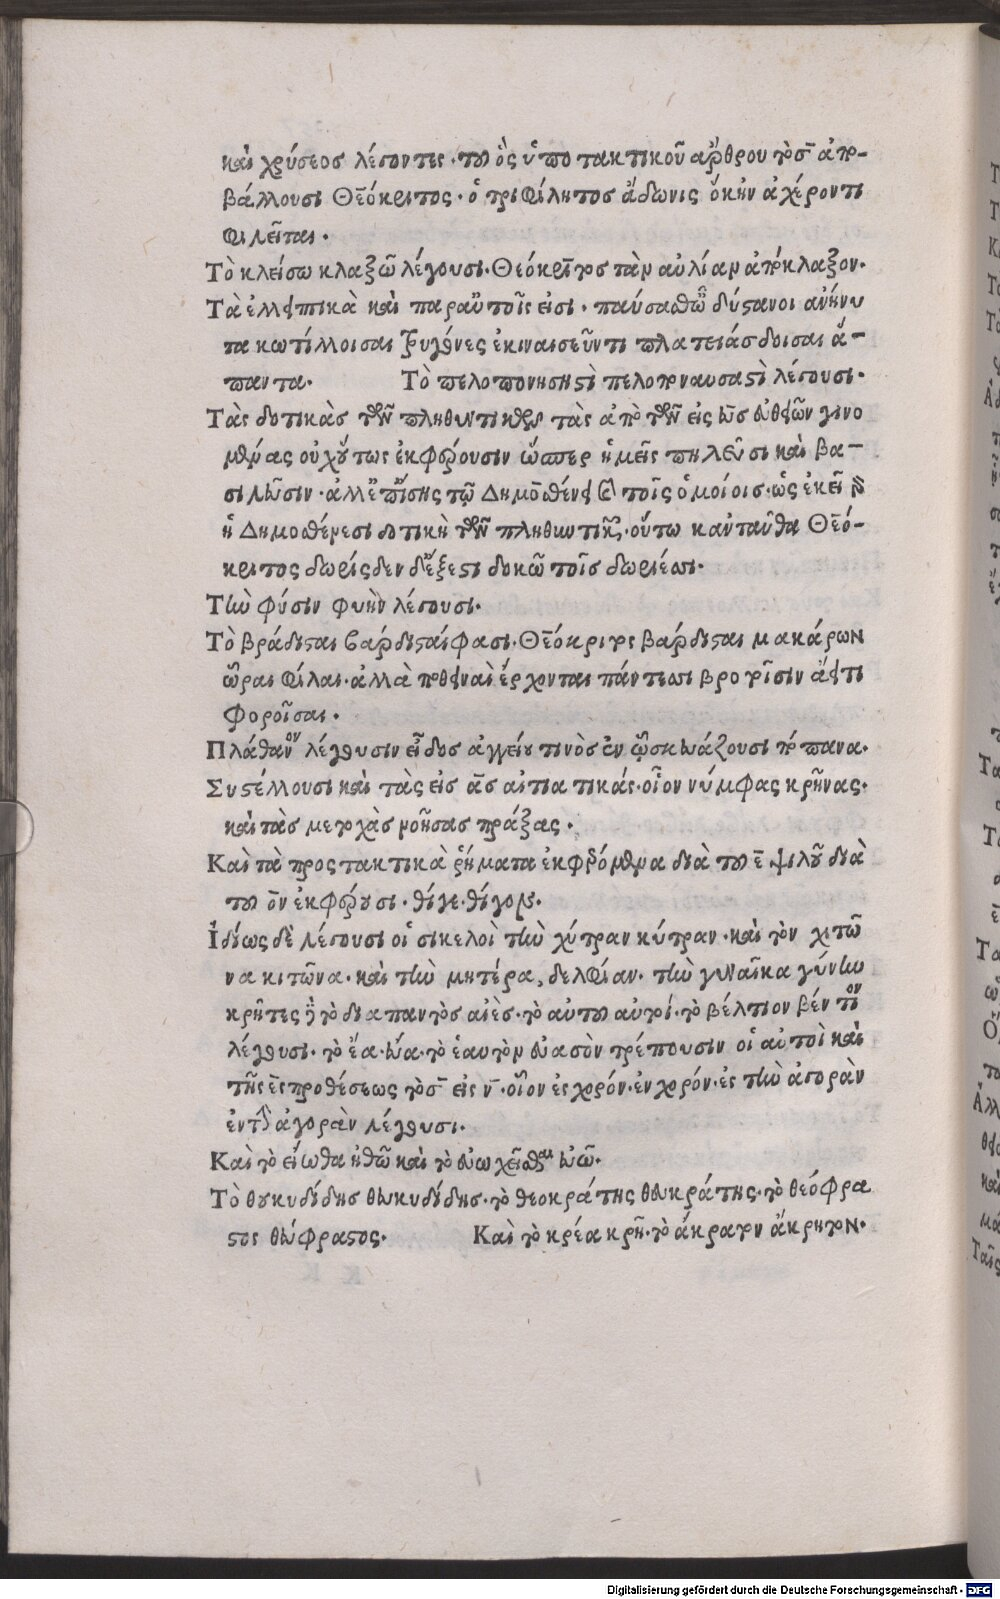 καὶ χρύσεος λέγοντες· τοῦ ὃς ὑποτακτικοῦ ἄρθρου τὸ σ̄ ἀπο-
βάλλουσι Θεόκριτος· ὁ τριφίλητος ἄδωνις ὁ κἠν ἀχέροντι
φιλεῖται.
Τὸ κλείσω κλαξῶ λέγουσι. Θεόκριτος τὰν αὐλίαν ἀπόκλαξον.
Τὰ ἐλλειπτικὰ καὶ παρ' αὐτοῖς εἰσι· παύσασθ' ὦ δύστανοι ἀνήνυ
τα κωτίλλοισαι τρυγόνες ἐκκναισεῦντι πλατειάσδοισαι ἅ-
παντα. Τὸ πελοπόννησος πελοπόνναυσος λέγουσι.
Τὰς δοτικὰς τῶν πληθυντικῶν τὰς ἀπὸ τῶν εἰς ευς εὐθειῶν γινο
μένας οὐχ οὕτως ἐκφέρουσιν ὥσπερ ἡμεῖς πηλεῦσι καὶ βα-
σιλεῦσιν· ἀλλ' ἐπίσης τῷ Δημοσθένει καὶ τοῖς ὁμοίοις· ὡς ἐκεῖ
ἡ Δημοσθένεσι δοτικὴ τῶν πληθυντικῶν· οὕτω κἀνταῦθα Θεό-
κριτος δωρίσδεν δ' ἔξεστι δοκῶ τοῖς δωριέεσσι.
Τὴν φύσιν φυὴν λέγουσι.
Τὸ βράδισται βάρδισταί φασι. Θεόκριτος βάρδισται μακάρων
ὧραι φίλαι· ἀλλὰ ποθειναὶ ἔρχονται πάντεσσι βροτοῖσιν ἀεί τι
φοροῖσαι.
Πλάθανον λέγουσιν εἶδος ἀγγείου τινὸς ἐν ᾧ σκευάζουσι πόπανα.
Συστέλλουσι καὶ τὰς εἰς ας αἰτιατικάς· οἷον νύμφας κρήνας.
καὶ τὰς μετοχὰς νοήσας πράξας.
Καὶ τὰ προστακτικὰ ῥήματα ἐκφερόμενα διὰ τοῦ ε̄ ψιλοῦ διὰ
τοῦ ον ἐκφέρουσι· θίγε θίγον.
Ἰδίως δὲ λέγουσι οἱ σικελοὶ τὴν χύτραν κύτραν· καὶ τὸν χιτῶ
να κιτῶνα· καὶ τὴν μητέρα, δελφίαν. τὴν γυναῖκα γύνην
κρῆτες δὲ τὸ διαπαντὸς αἰές· τὸ αὐτοῦ αὐτοῖ· τὸ βέλτιον βέντιον
λέγουσι· τὸ ἔα· εὔα· τὸ ἑαυτὸν εὐασὸν τρέπουσιν οἱ αὐτοὶ καὶ
τῆς ἐς προθέσεως τὸ σ̄ εἰς ν̄· οἷον ἐς χορόν· ἐν χορόν· ἐς τὴν ἀγορὰν
ἐν τὴν ἀγορὰν λέγουσι.
Καὶ τὸ εἴωθα ἠθῶ καὶ τὸ εὐωχεῖσθαι εὐῶ.
Τὸ θουκυδίδης θευκυδίδης· τὸ θεοκράτης θευκράτης· τὸ θεόφρα
στος θεύφραστος. Καὶ τὸ κρέα κρῆ· τὸ ἄκρατον ἄκρητον.
Digitalisierung gefördert durch die Deutsche Forschungsgemeinschaft - DFG